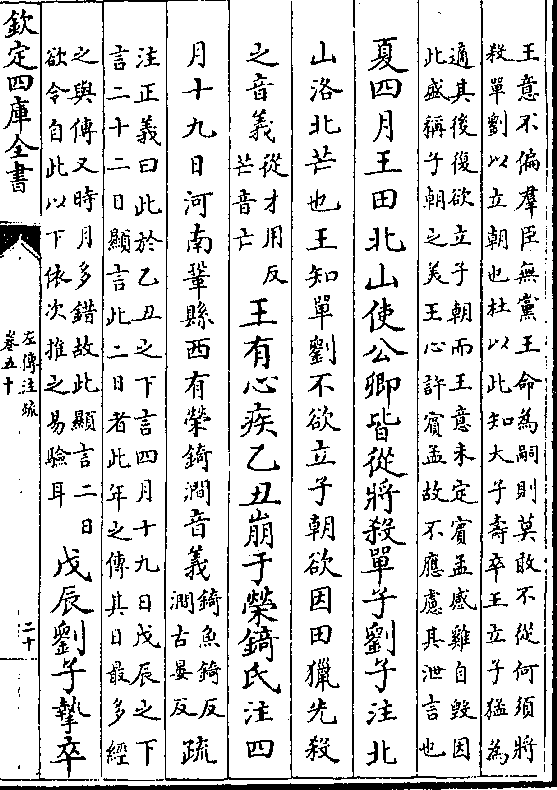 王意不偏羣臣無黨王命為嗣則莫敢不從何須將
殺單劉以立朝也杜以此知大子壽卒王立子猛為
適其後復欲立子朝而王意未定賓孟感雞自毀因
此盛稱子朝之美王心許賓孟故不應慮其泄言也
夏四月王田北山使公卿皆從將殺單子劉子注北
山洛北芒也王知單劉不欲立子朝欲因田獵先殺
之音義從才用反
芒音亡
王有心疾乙丑崩于榮錡氏注四
月十九日河南鞏縣西有榮錡澗音義錡魚錡反
澗古晏反
疏
注正義曰此於乙丑之下言四月十九日戊辰之下
言二十二日顯言此二日者此年之傳其日最多經
之與傳又時月多錯故此顯言二日
欲令自此以下依次推之易驗耳
戊辰劉子摯卒
欽定四庫全書
左傳注疏
卷五十
二十